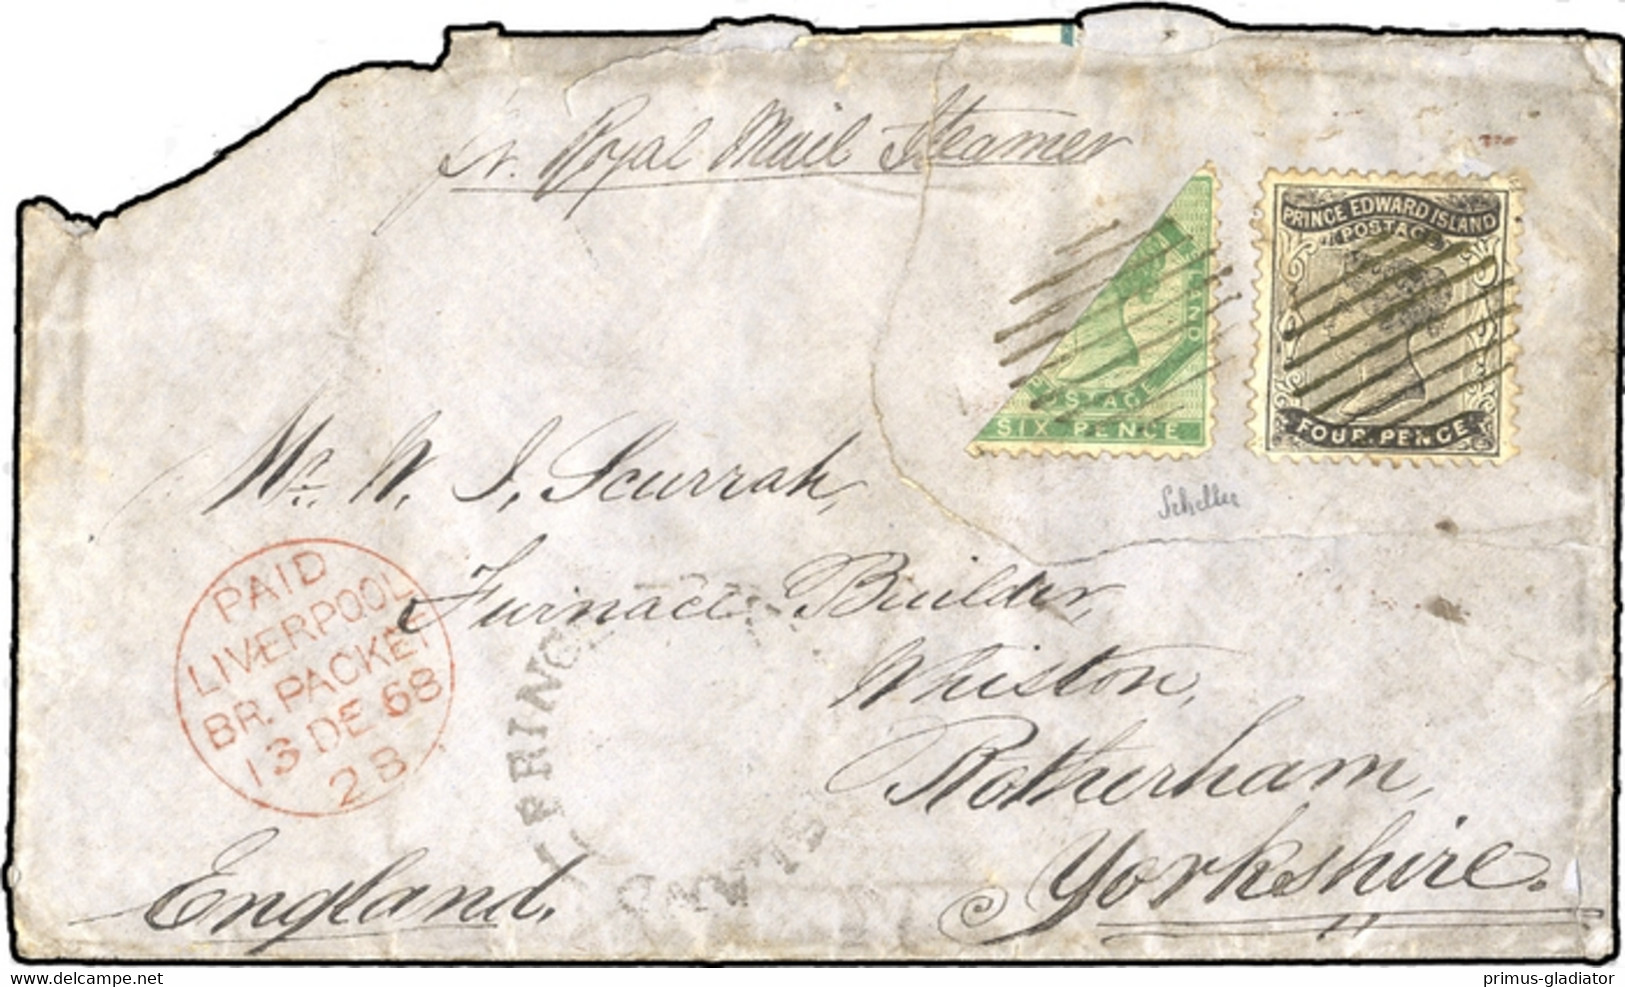 pr. Royal Mail Steamer
PRINCE EDWARD ISLAND
POSTAGE
FOUR PENCE
POSTAGE
SIX PENCE
Scheller
Mr. W. J. Scurrah,
Furnace Builder,
Whiston,
Rotherham,
Yorkshire.
England.
PAID
LIVERPOOL
BR. PACKET
13 DE 68
2B
PRINCE
ISLAND
www.delcampe.net
primus-gladiator